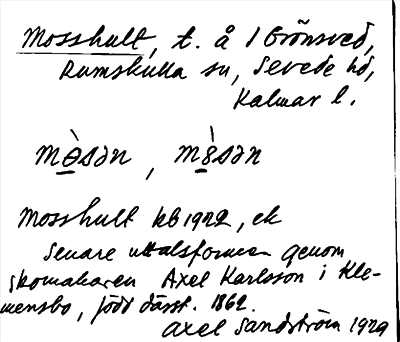 Mosshult, t. å / Grönsved,
Rumskulla sn, Sevede hd,
Kalmar l.
mɵ̀sən, m8̀sən
Mosshult kb 1922, ek
Senare uttalsformen genom
skomakaren Axel Karlsson i Kle-
mensbo, född därst. 1862.
Axel Sandström 1929